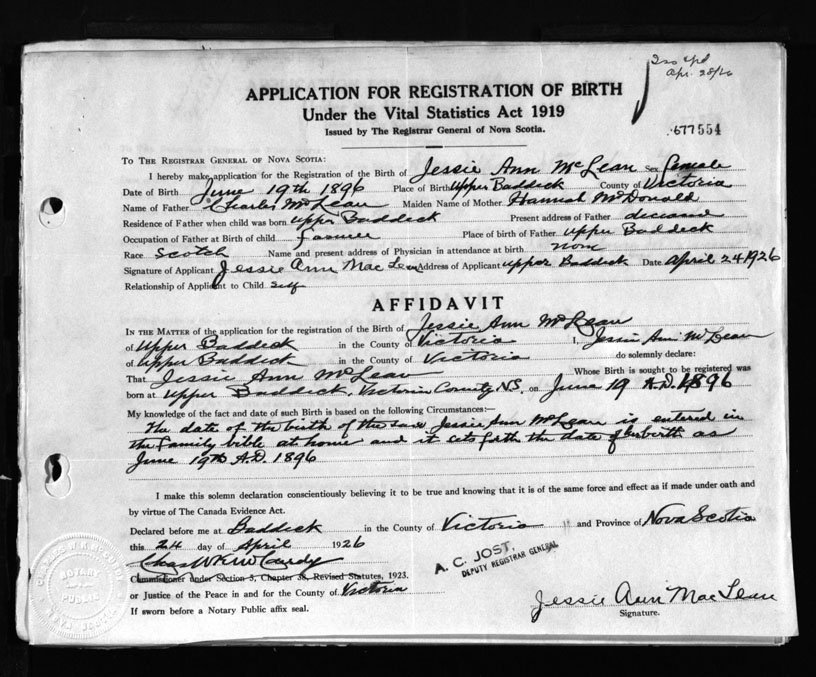 Apr. 28/26
APPLICATION FOR REGISTRATION OF BIRTH
Under the Vital Statistics Act 1919
Issued by The Registrar General of Nova Scotia.
677554
TO THE REGISTRAR GENERAL OF NOVA SCOTIA:
I hereby make application for the Registration of the Birth of Jessie Ann McLean Sex female
Date of Birth June 19th 1896 Place of Birth Upper Baddeck County of Victoria
Name of Father Charles McLean Maiden Name of Mother Hannah McDonald
Residence of Father when child was born Upper Baddeck Present address of Father deceased
Occupation of Father at Birth of child farmer Place of birth of Father Upper Baddeck
Race Scotch Name and present address of Physician in attendance at birth none
Signature of Applicant Jessie Ann MacLean Address of Applicant Upper Baddeck Date April 24 1926
Relationship of Applicant to Child self
AFFIDAVIT
IN THE MATTER of the application for the registration of the Birth of Jessie Ann McLean
of Upper Baddeck in the County of Victoria I, Jessie Ann McLean
of Upper Baddeck in the County of Victoria do solemnly declare:
That Jessie Ann McLean Whose Birth is sought to be registered was
born at Upper Baddeck, Victoria County, N.S. on June 19 A.D. 1896
My knowledge of the fact and date of such Birth is based on the following Circumstances:—
The date of the birth of the said Jessie Ann McLean is entered in
the family bible at home and it sets forth the date of her birth as
June 19th A.D. 1896
I make this solemn declaration conscientiously believing it to be true and knowing that it is of the same force and effect as if made under oath and
by virtue of The Canada Evidence Act.
Declared before me at Baddeck in the County of Victoria and Province of Nova Scotia
this 24 day of April 1926
A. C. JOST,
DEPUTY REGISTRAR GENERAL
Commissioner under Section 3, Chapter 38, Revised Statutes, 1923.
or Justice of the Peace in and for the County of Victoria
If sworn before a Notary Public affix seal.
Jessie Ann MacLean
Signature.
NOTARY
PUBLIC
NOVA SCOTIA